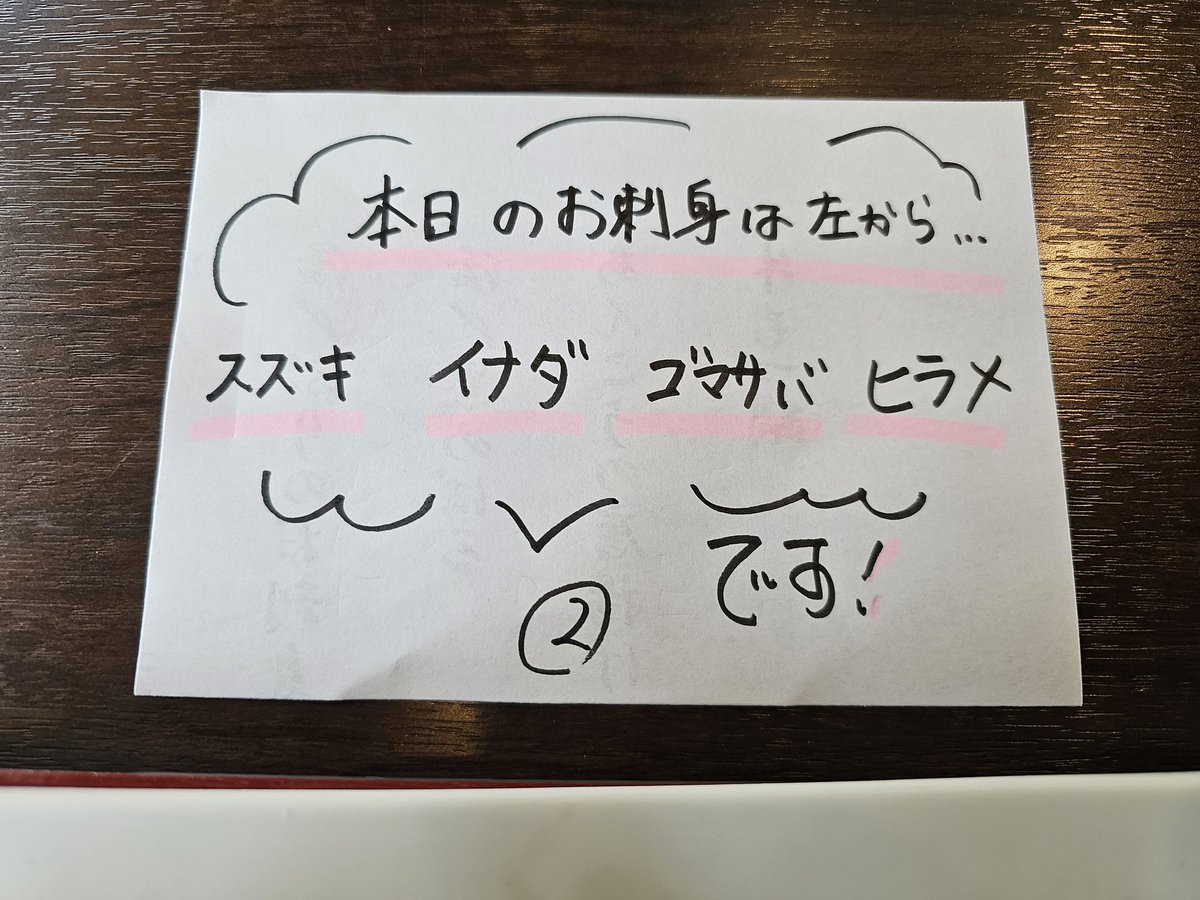 本日のお刺身は左から…
スズキ イナダ ゴマサバ ヒラメ
です!
②